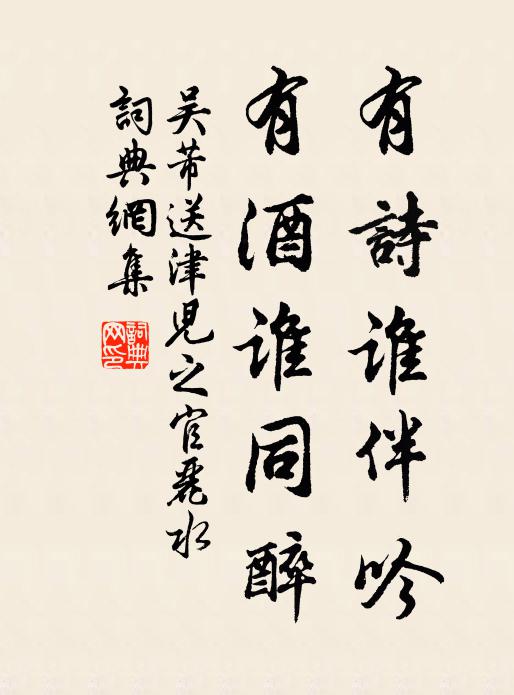 有詩誰伴吟
有酒誰同醉
吴芾送津兒之官麗水
詞典網集
詞典网印